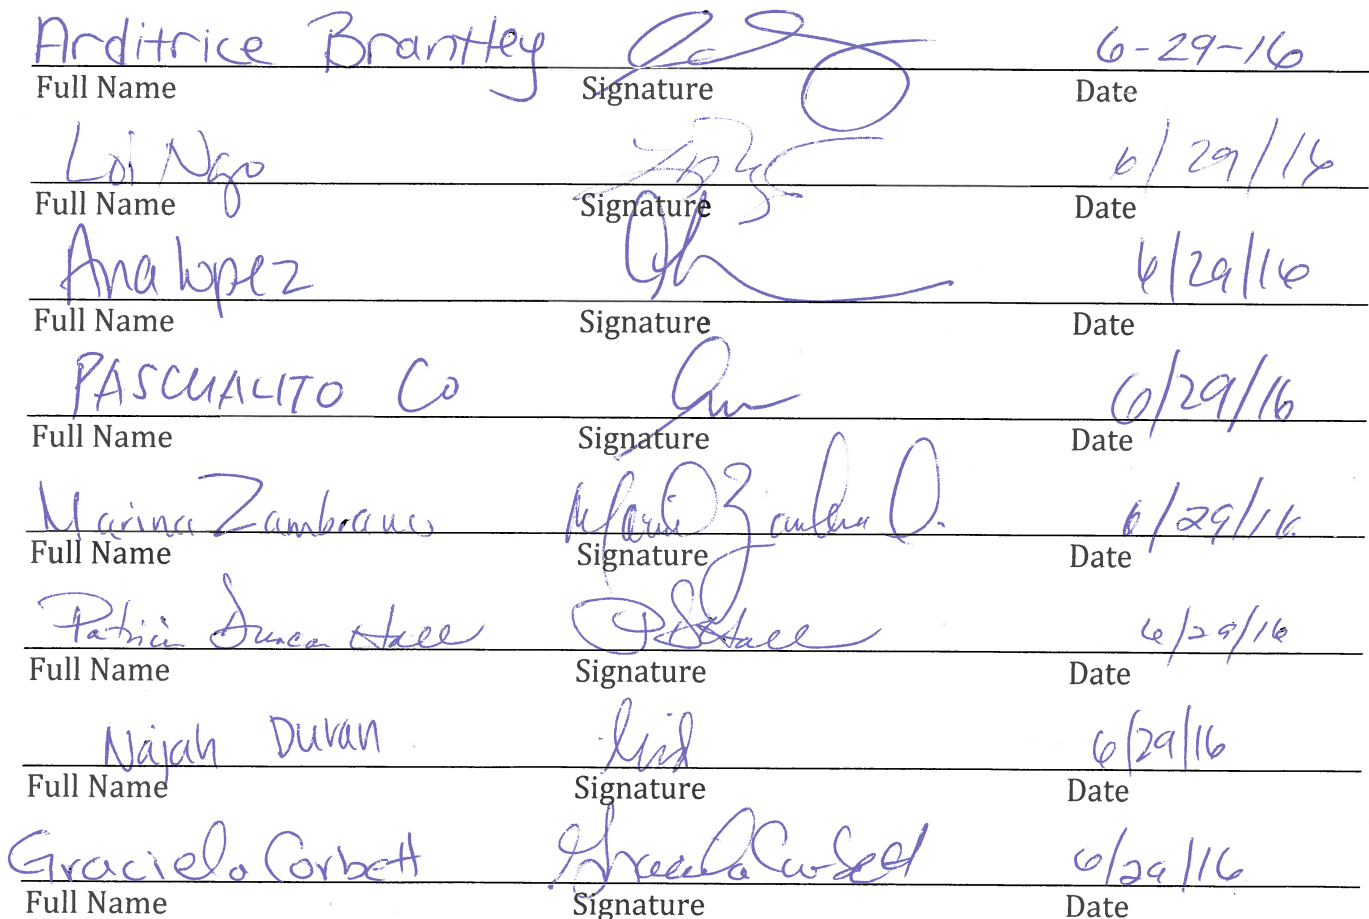 Arditrice Brantley 6-29-16
Full Name Signature Date
Loi Ngo 6/29/16
Full Name Signature Date
Ana Lopez 6/29/16
Full Name Signature Date
PASCUALITO Co 6/29/16
Full Name Signature Date
Marina Zambrano 6/29/16
Full Name Signature Date
Patricia Duncan Hall PDHall 6/29/16
Full Name Signature Date
Najah Duvan 6/29/16
Full Name Signature Date
Graciela Corbett Graciela Corbett 6/29/16
Full Name Signature Date